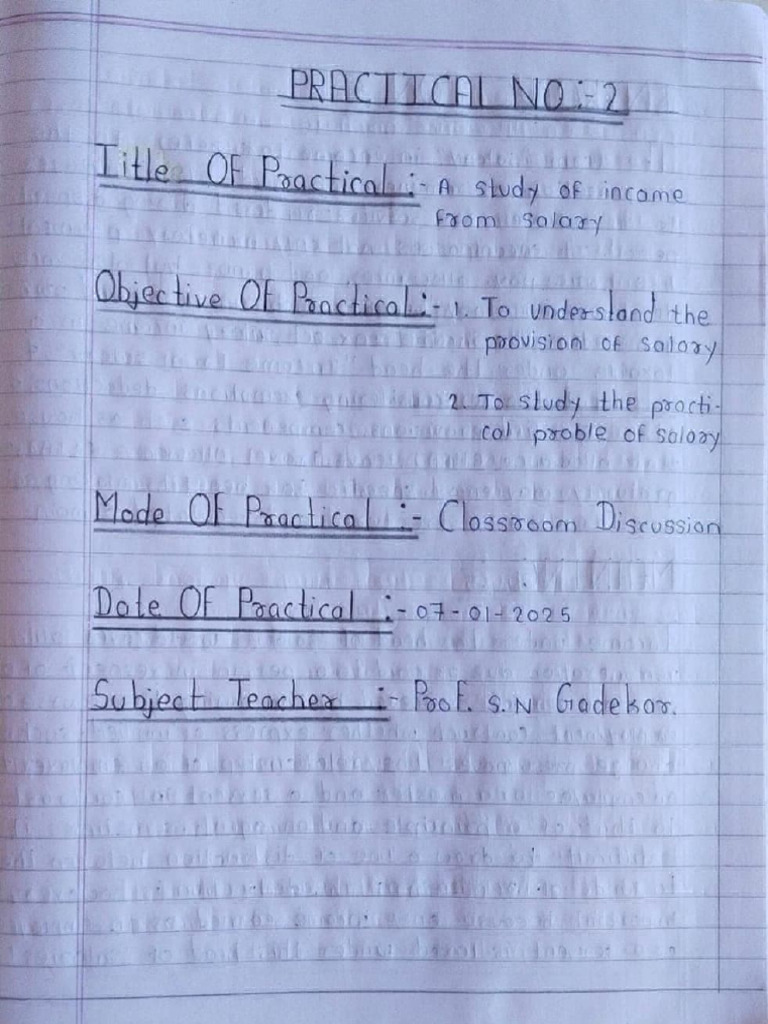 PRACTICAL NO :- 2
Title OF Practical :- A study of income
from salary
Objective OF Practical :- 1. To understand the
provision of salary
2. To study the practi-
cal proble of salary
Mode OF Practical :- Classroom Discussion
Date OF Practical :- 07-01-2025
Subject Teacher :- Prof. S.N Gadekar.